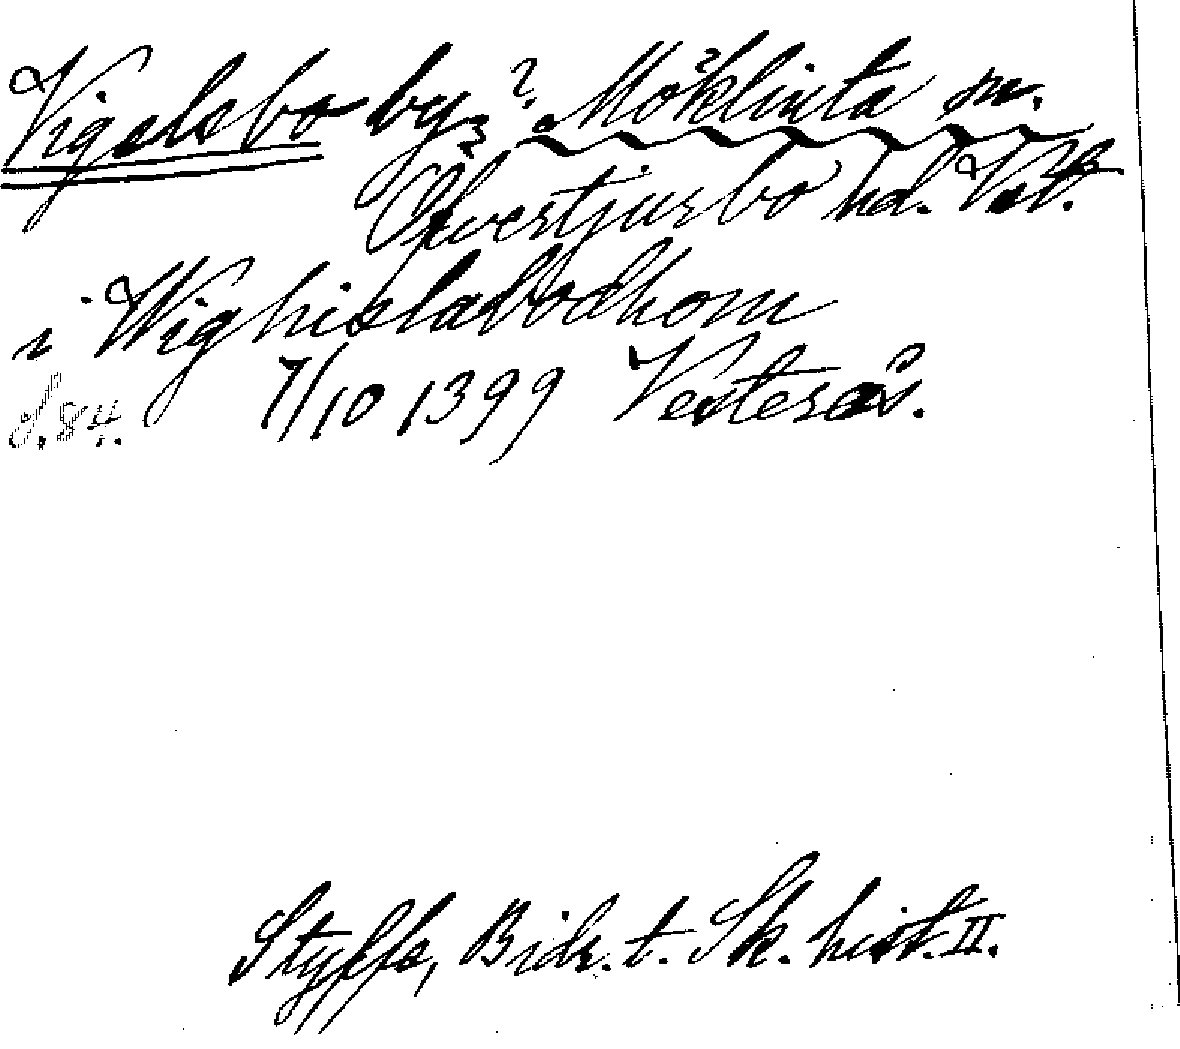 Vigelsbo by? Möklinta sn.
Övertjurbo hd. Vstm.
i Wighislabodhom
s. 84. 7/10 1399 Vesterås.
Styffe, Bidr. t. Sk. hist. II.